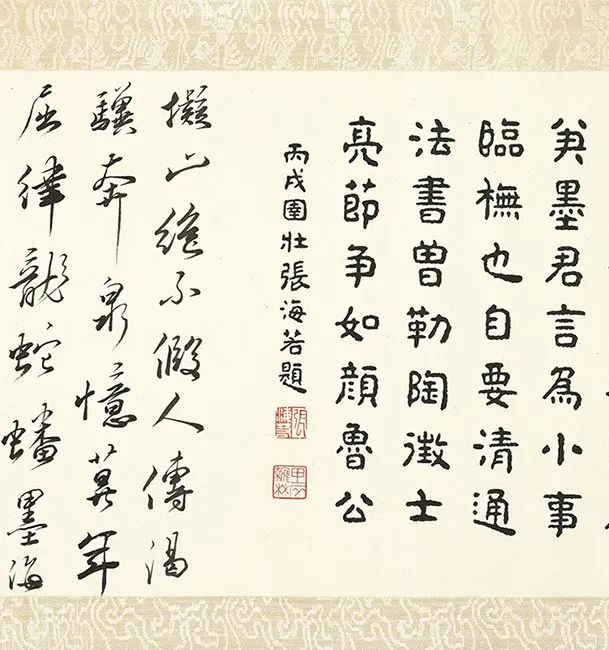 墨君言為小事
臨橅也自要清通
法書曾勒陶徵士
亮節争如顏魯公
丙戌圉壯張海若題
擬山絶不假人傳渴
驥奔泉憶年
屈律龍蛇蟠墨海